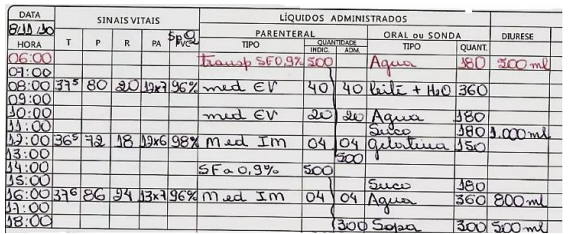 DATA SINAIS VITAIS LÍQUIDOS ADMINISTRADOS
8/11/10 SpO2 PARENTERAL ORAL ou SONDA DIURESE
HORA T P R PA PVC TIPO QUANTIDADE INDIC. ADM. TIPO QUANT.
06:00 transp SF0,9% 500 Agua 180 200 ml
07:00
08:00 37⁵ 80 20 12x7 96% med EV 40 40 leite + H2O 360
09:00
10:00 med EV 20 20 Agua 180
11:00 Suco 180 1.000 ml
12:00 36⁵ 72 18 12x6 98% Med IM 04 04 gelatina 150
13:00 500
14:00 SF a 0,9% 500
15:00 Suco 180
16:00 37⁶ 86 24 13x7 96% Med IM 04 04 Agua 360 800 ml
17:00
18:00 300 Sopa 300 500 ml